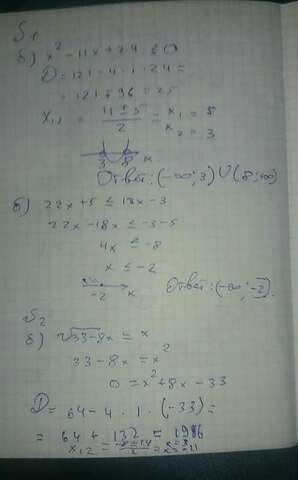 №1
б) x² - 11x + 24 ≤ 0
D = 121 - 4 · 1 · 24 =
= 121 + 96 = 25
x₁,₂ = (11 ± 5)/2 = x₁ = 8
x₂ = 3
3 8 x
Ответ: (-∞; 3) ∪ (8; ∞)
б) 22x + 5 ≤ 18x - 3
22x - 18x ≤ -3 - 5
4x ≤ -8
x ≤ -2
-2 x
Ответ: (-∞; -2].
№2
б) √33-8x = x
33 - 8x = x²
0 = x² + 8x - 33
D = 64 - 4 · 1 · (-33) =
= 64 + 132 = 196
x₁₂ = (-8 ± 14)/2 = x = 3 x = -11